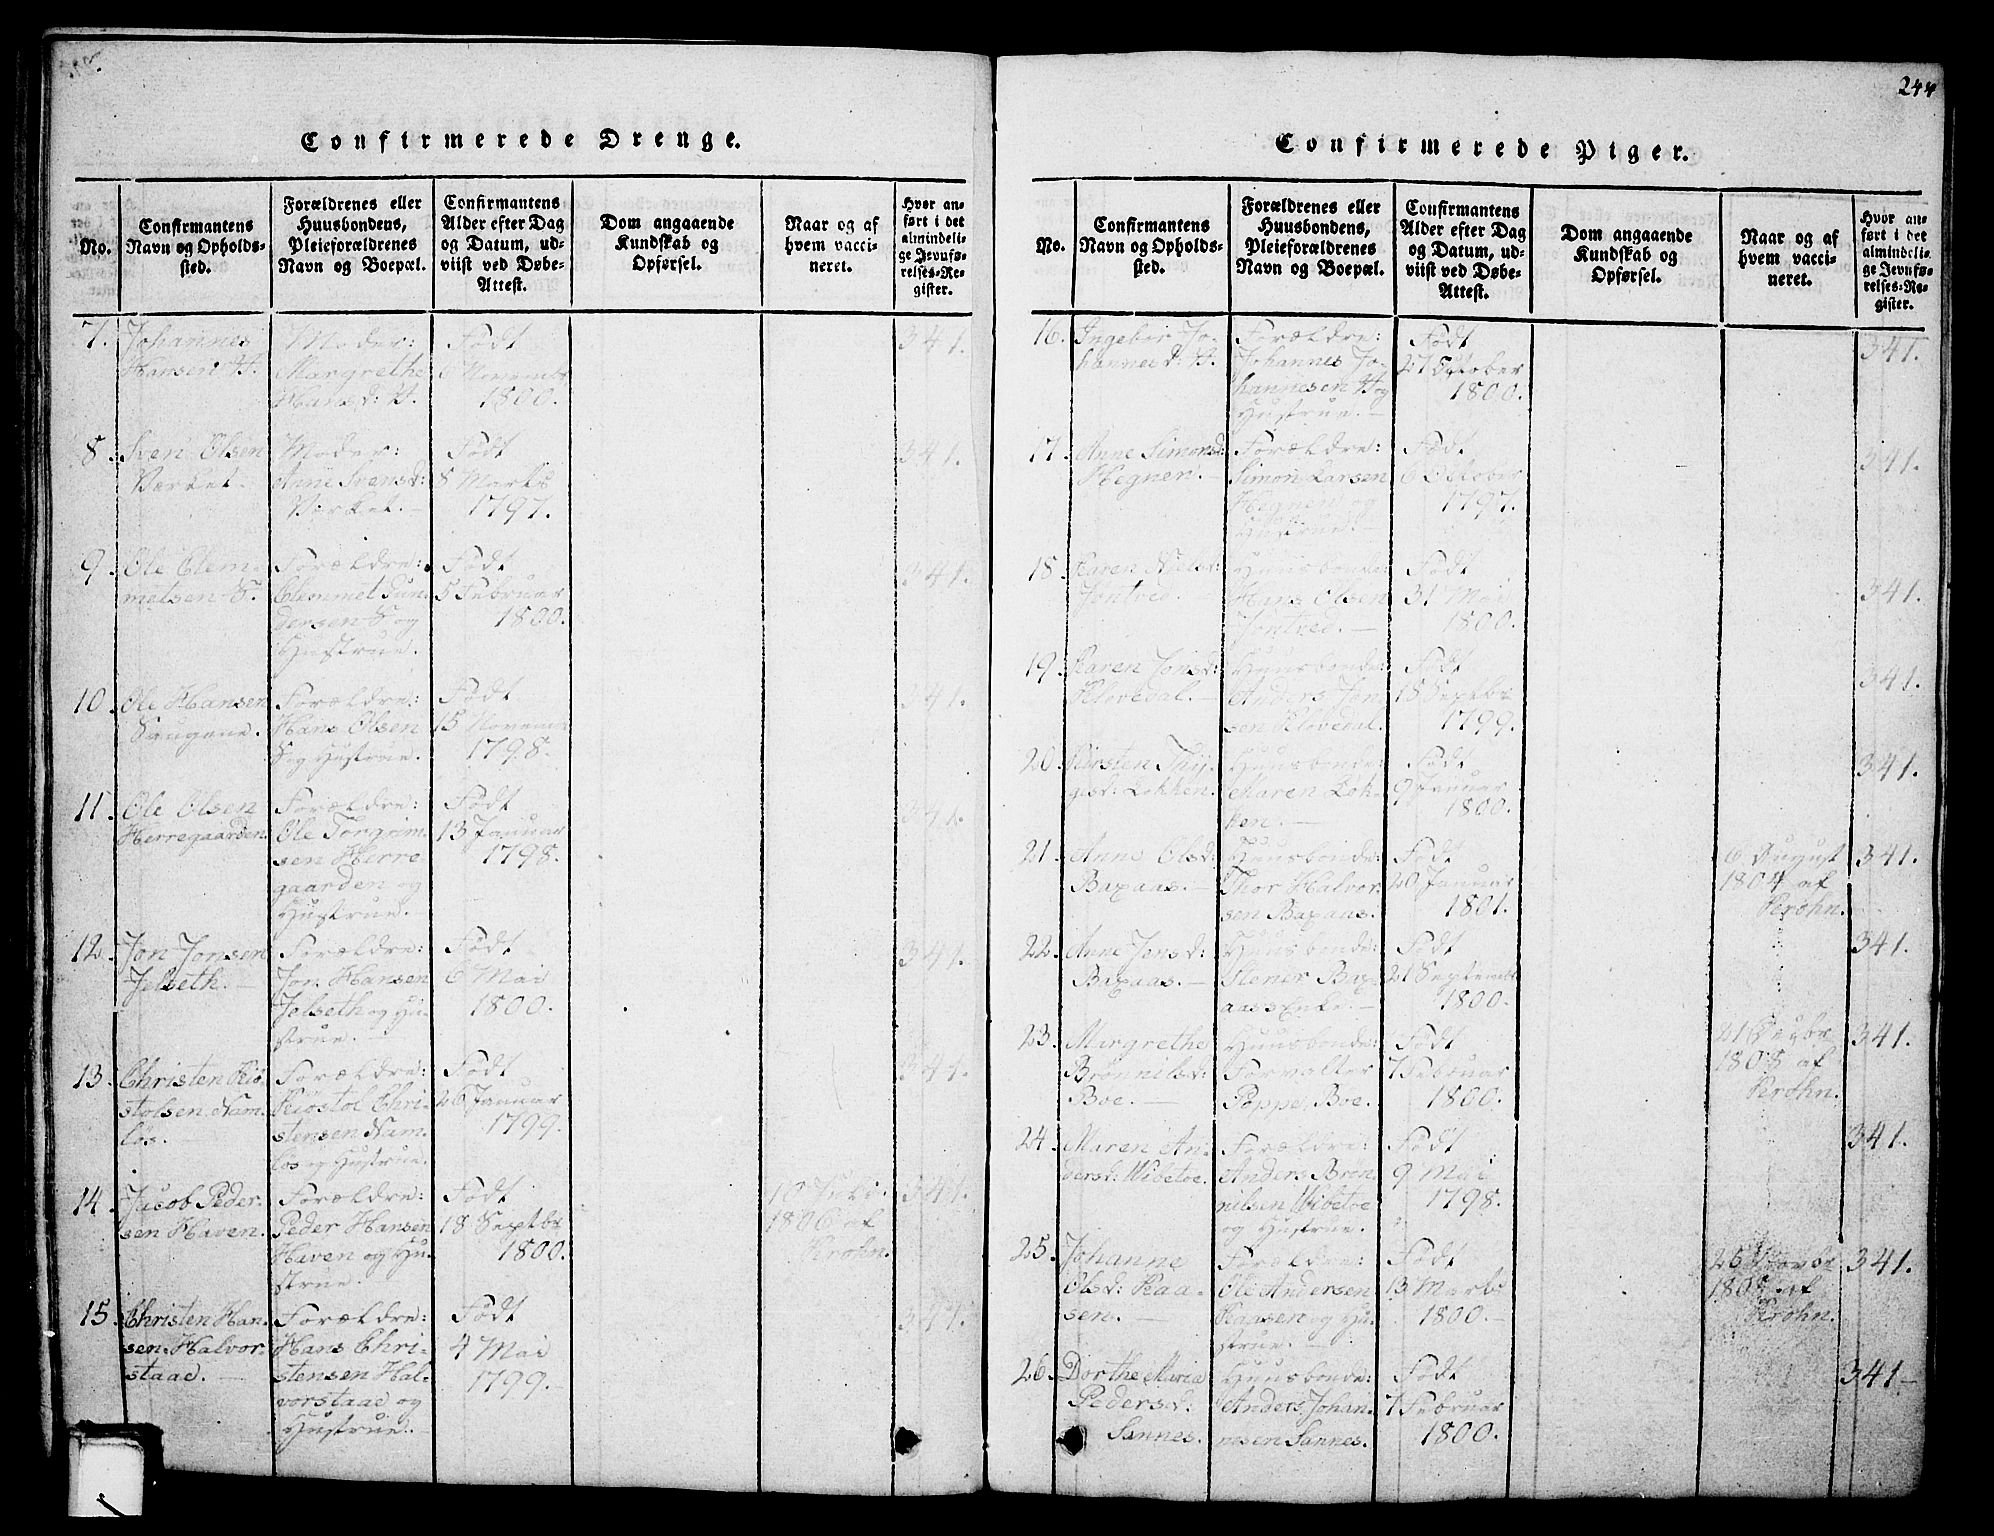 244
Confirmerede Drenge.
No.
Confirmantens
Navn og Opholds-
sted.
Forældrenes eller
Huusbondens,
Pleieforældrenes
Navn og Boepæl.
Confirmantens
Alder efter Dag
og Datum, ud-
viist ved Døbe-
Attest.
Dom angaaende
Kundskab og
Opførsel.
Naar og af
hvem vacci-
neret.
Hvor an-
ført i det
almindeli-
ge Jevnfø-
relses-Re-
gister.
7.
Johannes
Hansen H.
Moder:
Margrethe
Hansd: H.
Født
6 Novembr
1800.
341.
8.
Sven Olsen
Værket.
Moder:
Anne Svensd:
Værket.
Født
8 Marts
1797.
341.
9.
Ole Clem-
metsen S.
Forældre:
Clemmet Gun-
dersen S og
Hustrue.
Født
5 Februar
1800.
341.
10.
Ole Hansen
Saugene.
Forældre:
Hans Olsen
S og Hustrue.
Født
15 Novemr
1798.
341.
11.
Ole Olsen
Herregaarden.
Forældre:
Ole Torgrim-
sen Herre-
gaarden og
Hustrue.
Født
13 Januar
1798.
341.
12.
Jon Jonsen
Jelseth.
Forældre:
Jon Hansen
Jelseth og Hu-
strue.
Født
6 Mai
1800.
341.
13.
Christen Kiø-
stolsen Nam-
løs.
Forældre:
Kiöstol Chri-
stensen Nam-
løs og Hustrue.
Født
26 Januar
1799.
341.
14.
Jacob Peder-
sen Haven.
Forældre:
Peder Hansen
Haven og Hu-
strue.
Født
18 Septbr
1800.
Juli
1806 af
Krohn.
341.
15.
Christen Han-
sen Halvor-
staae.
Forældre:
Hans Chri-
stensen Hal-
vorstaae og
Hustrue.
Født
4 Mai
1799.
341.
Confirmerede Piger.
No.
Confirmantens
Navn og Opholds-
sted.
Forældrenes eller
Huusbondens,
Pleieforældrenes
Navn og Boepæl.
Confirmantens
Alder efter Dag
og Datum, ud-
viist ved Døbe-
Attest.
Dom angaaende
Kundskab og
Opførsel.
Naar og af
hvem vacci-
neret.
Hvor an-
ført i det
almindeli-
ge Jevnfø-
relses-Re-
gister.
16.
Ingebor Jo-
hannesd: H.
Forældre:
Johannes Jo-
hannesen H og
Hustrue.
Født
27 October
1800.
341.
17.
Anne Simonsd:
Hegnen.
Forældre:
Simon Larsen
Hegnen og
Hustrue.
Født
6 October
1797.
341.
18.
Karen Nielsd:
Jontved.
Huusbonde:
Hans Olsen
Jontved.
Født
31 Mai
1800.
341.
19.
Karen Jonsd:
Kloveдal.
Huusbonde:
Anders Jon-
sen Klovedal.
Født
18 Septbr
1799.
341.
20.
Kirsten Thy-
gesd: Løkken.
Huusbonde:
Maren Løk-
ken.
Født
9 Januar
1800.
341.
21.
Anne Olsd:
Baxaas.
Huusbonde:
Thor Halvor-
sen Baxaas.
Født
20 Januar
1801.
6 August
1804 af
Krohn.
341.
22.
Anne Jensd:
Baxaas.
Huusbonde:
Stener Bax-
aas's Enke.
Født
21 Septembr
1800.
341.
23.
Margrethe
Brønnilsd:
Boe.
Huusbonde:
Forvalter
Poppe, Boe.
Født
7 Februar
1800.
1805 af
Krohn.
341.
24.
Maren An-
dersd: Wibetoe.
Forældre:
Anders Brøn-
nilsen Wibetoe
og Hustrue.
Født
9 Mai
1798.
341.
25.
Johanne
Olsd: Kaa-
sen.
Forældre:
Ole Andersen
Kaasen og Hu-
strue.
Født
13 Marts
1800.
26 Novbr
1805 af
Krohn.
341.
26.
Dorthe Maria
Pedersd:
Sannes.
Huusbonde:
Anders Johan-
nesen Sannes.
Født
7 Februar
1800.
341.